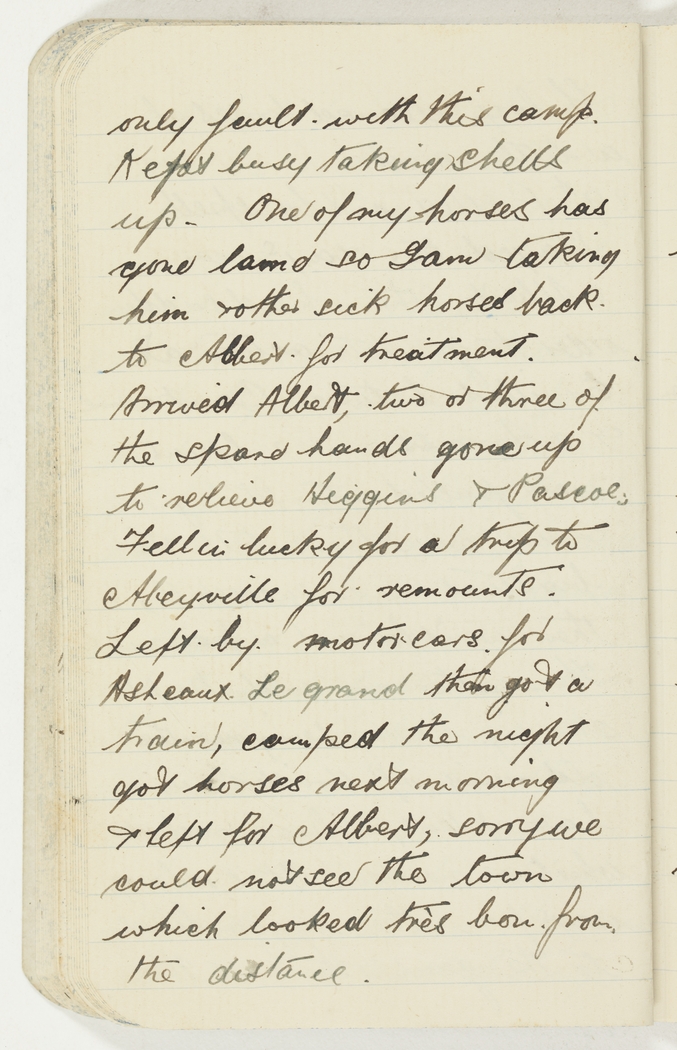 only fault with this camp.
Kept busy taking shells
up - One of my horses has
gone lame so I am taking
him & other sick horses back
to Albert for treatment.
Arrived Albert, two or three of
the spare hands gone up
to relieve Higgins & Pascoe.
Fell in lucky for a trip to
Abeyville for remounts.
Left by motor cars for
Asheaux Le grand then got a
train, camped the night
got horses next morning
& left for Albert, sorry we
could not see the town
which looked très bon from
the distance.